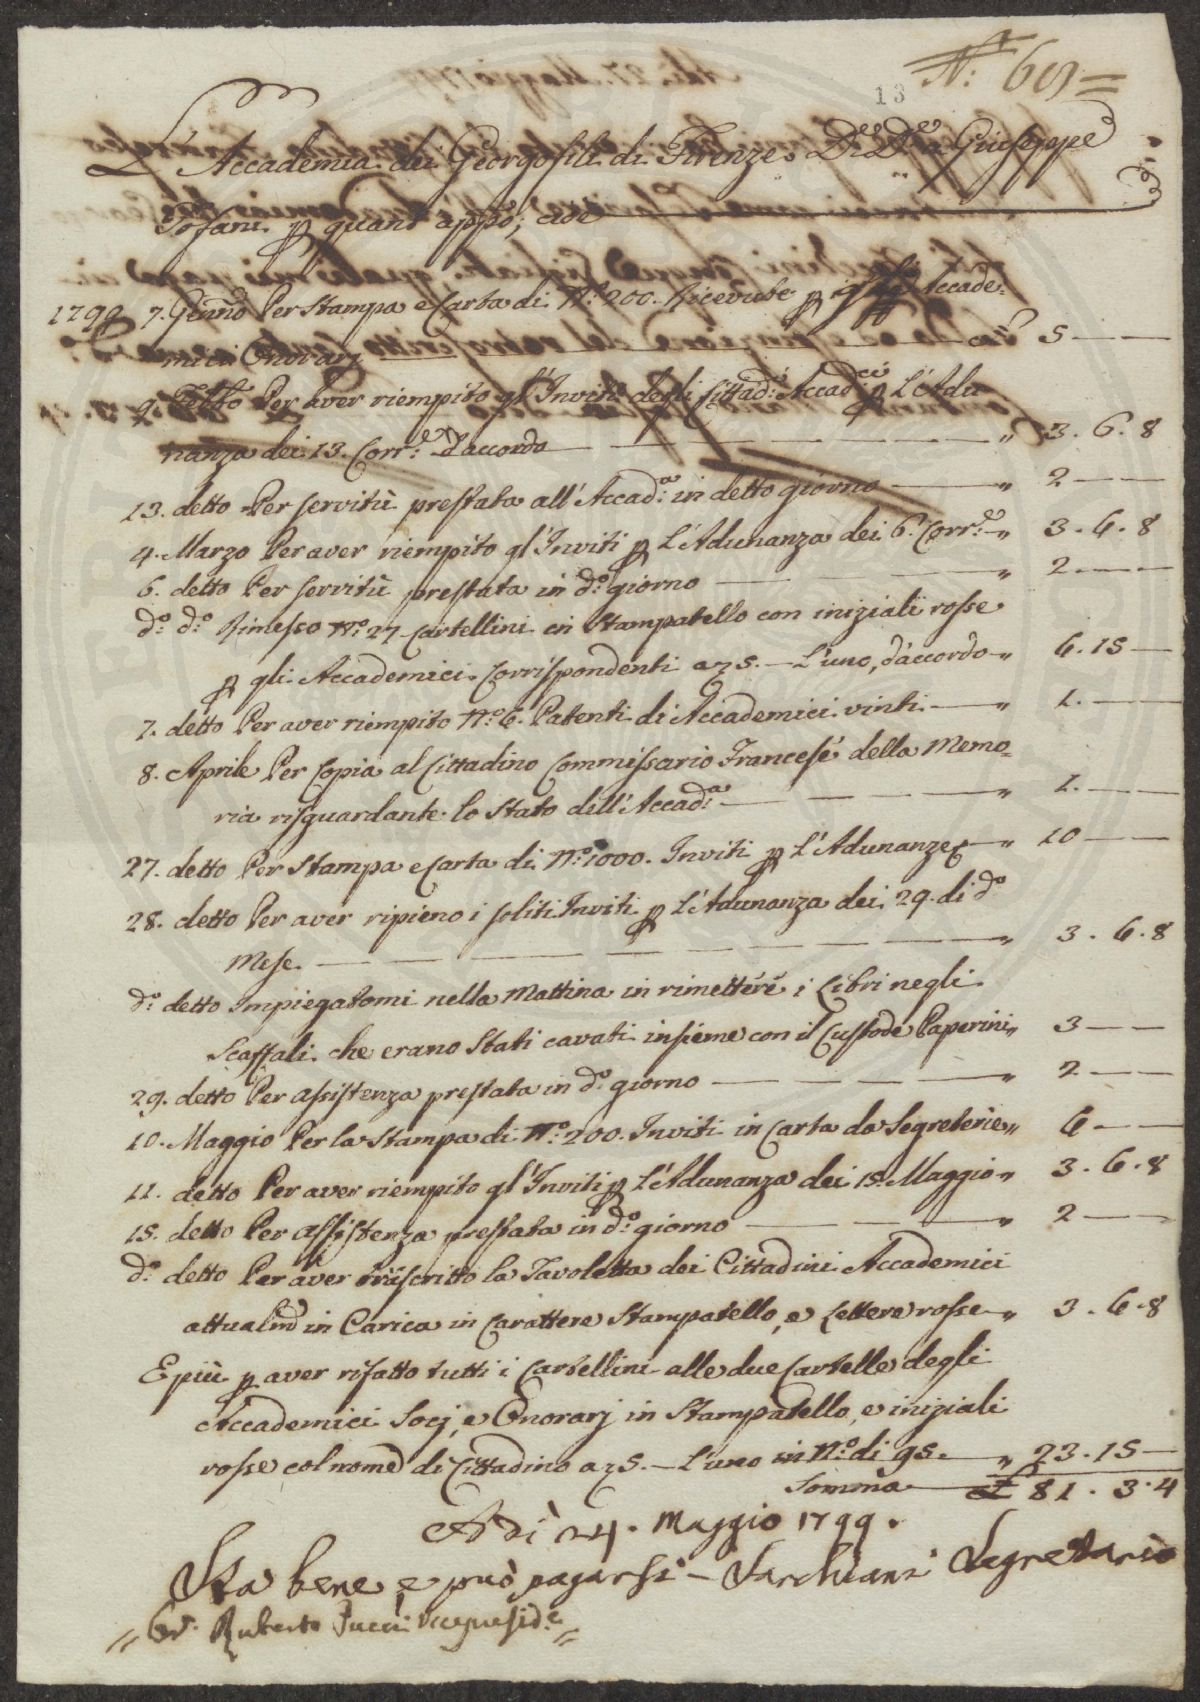 N.° 69=
13
L'Accademia dei Georgofili di Firenze. De. De. a Giuseppe
Tofani p quant'app.o; cioe
1799 7. Genn.o Per Stampa e Carta di N.° 200. Ricevute p gli Accade=
mici Onorarj 5 — —
9. Febb.o Per aver riempito gl'Inviti degli Cittad.i Accad.ci p L'Adu
nanza dei 13. Corr.e d'accordo — " 3. 6. 8
13. detto Per servitù prestata all'Accad.a in detto giorno — " 2 — —
4. Marzo Per aver riempito gl'Inviti p L'Adunanza dei 6. Corr.e — " 3. 6. 8
6. detto Per servitù prestata in d.o giorno — " 2 — —
d.o d.o Rimesso N.° 27 Cartellini in Stampatello con iniziali rosse
p gli Accademici Corrispondenti a 5. — L'uno, d'accordo — " 6. 15 —
7. detto Per aver riempito N.° 6. Patenti di Accademici vinti — " 1. — —
8. Aprile Per Copia al Cittadino Commissario Francese della Memo=
ria risguardante lo Stato dell'Accad.a — " 1. — —
27. detto Per Stampa e Carta di N.° 1000. Inviti p L'Adunanze — " 10 — —
28. detto Per aver ripieno i soliti Inviti p L'Adunanza dei 29. di d.o
Mese. — " 3. 6. 8
d.o detto Impiegatomi nella Mattina in rimettere i Libri negli
Scaffali che erano Stati cavati insieme con il Custode Paperini " 3 — —
29. detto Per assistenza prestata in d.o giorno — " 2 — —
10. Maggio Per la Stampa di N.° 200. Inviti in Carta da Segreterie " 6 — —
11. detto Per aver riempito gl'Inviti p L'Adunanza dei 15. Maggio " 3. 6. 8
15. detto Per assistenza prestata in d.o giorno — " 2 — —
d.o detto Per aver riscritto la Tavoletta dei Cittadini Accademici
attualm.e in Carica in Carattere Stampatello, e Lettere rosse — " 3. 6. 8
E più p aver rifatto tutti i Cartellini alle due Cartelle degli
Accademici Socj, e Onorarj in Stampatello, e iniziali
rosse col nome di Cittadino a 5. — L'uno in N.° di 95. — " 23. 15 —
Somma — £ 81. 3. 4
A dì 24. Maggio 1799.
Sta bene, e può pagarsi — Sarchiani Segretario
= Ruberto Pucci Vicepresid.e =